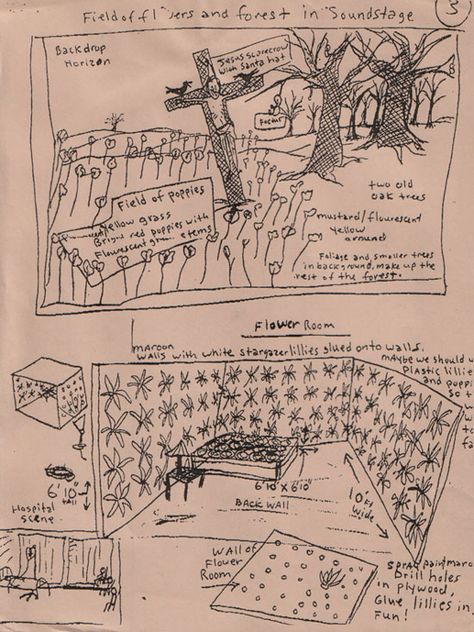 Field of flowers and forest in Soundstage
3
Backdrop
Horizon
Jesus scarecrow
with Santa hat
Field of poppies
Yellow grass
Bright red poppies with
Flourescent green stems
two old
oak trees
mustard/flourescent
Yellow
around
Foliage and smaller trees
in background, make up the
rest of the forest.
Flower Room
maroon
walls with white stargazer lillies glued onto walls.
MAYBE we should u
Plastic lillie
and popp
so t
to
fa
6'10"
tall
Hospital
scene
6'10" x 6'10"
BACK WALL
10'
Wide
WALL of
Flower
Room
spray paint maro
Drill holes
in plywood,
Glue lillies in
Fun!